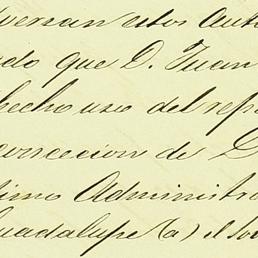 versan estos aut
do que D. Juan
hecho uso del re
correccion de D
timo Administra
Guadalupe (a) el